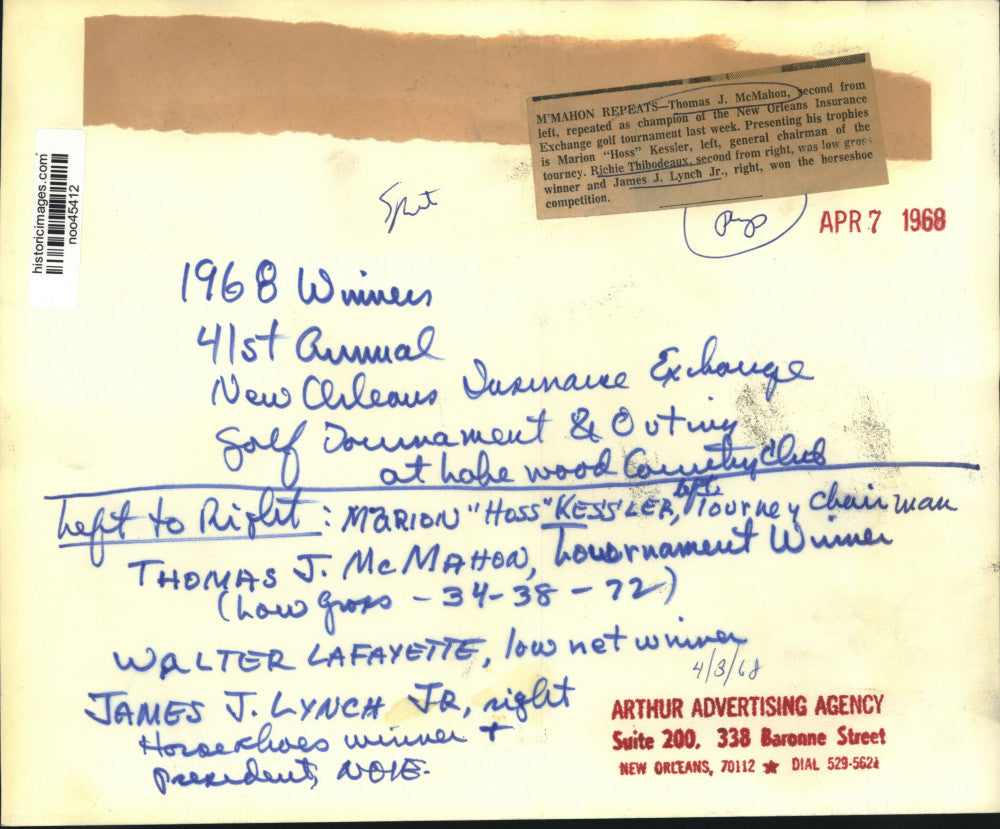 historicimages.com
noo45412
M'MAHON REPEATS—Thomas J. McMahon, second from
left, repeated as champion of the New Orleans Insurance
Exchange golf tournament last week. Presenting his trophies
is Marion "Hoss" Kessler, left, general chairman of the
tourney. Richie Thibodeaux, second from right, was low gross
winner and James J. Lynch Jr., right, won the horseshoe
competition.
APR 7 1968
1968 Winners
41st Annual
New Orleans Insurance Exchange
Golf Tournament & Outing
at Lakewood Country Club
Left to Right: MARION "HOSS" KESSLER, left, Tourney Chairman
THOMAS J. McMAHON, Tournament Winner
(Low Gross - 34-38-72)
WALTER LAFAYETTE, low net winner
4/3/68
JAMES J. LYNCH JR, right
Horseshoes winner +
President, NOIE.
ARTHUR ADVERTISING AGENCY
Suite 200, 338 Baronne Street
NEW ORLEANS, 70112 ★ DIAL 529-5621